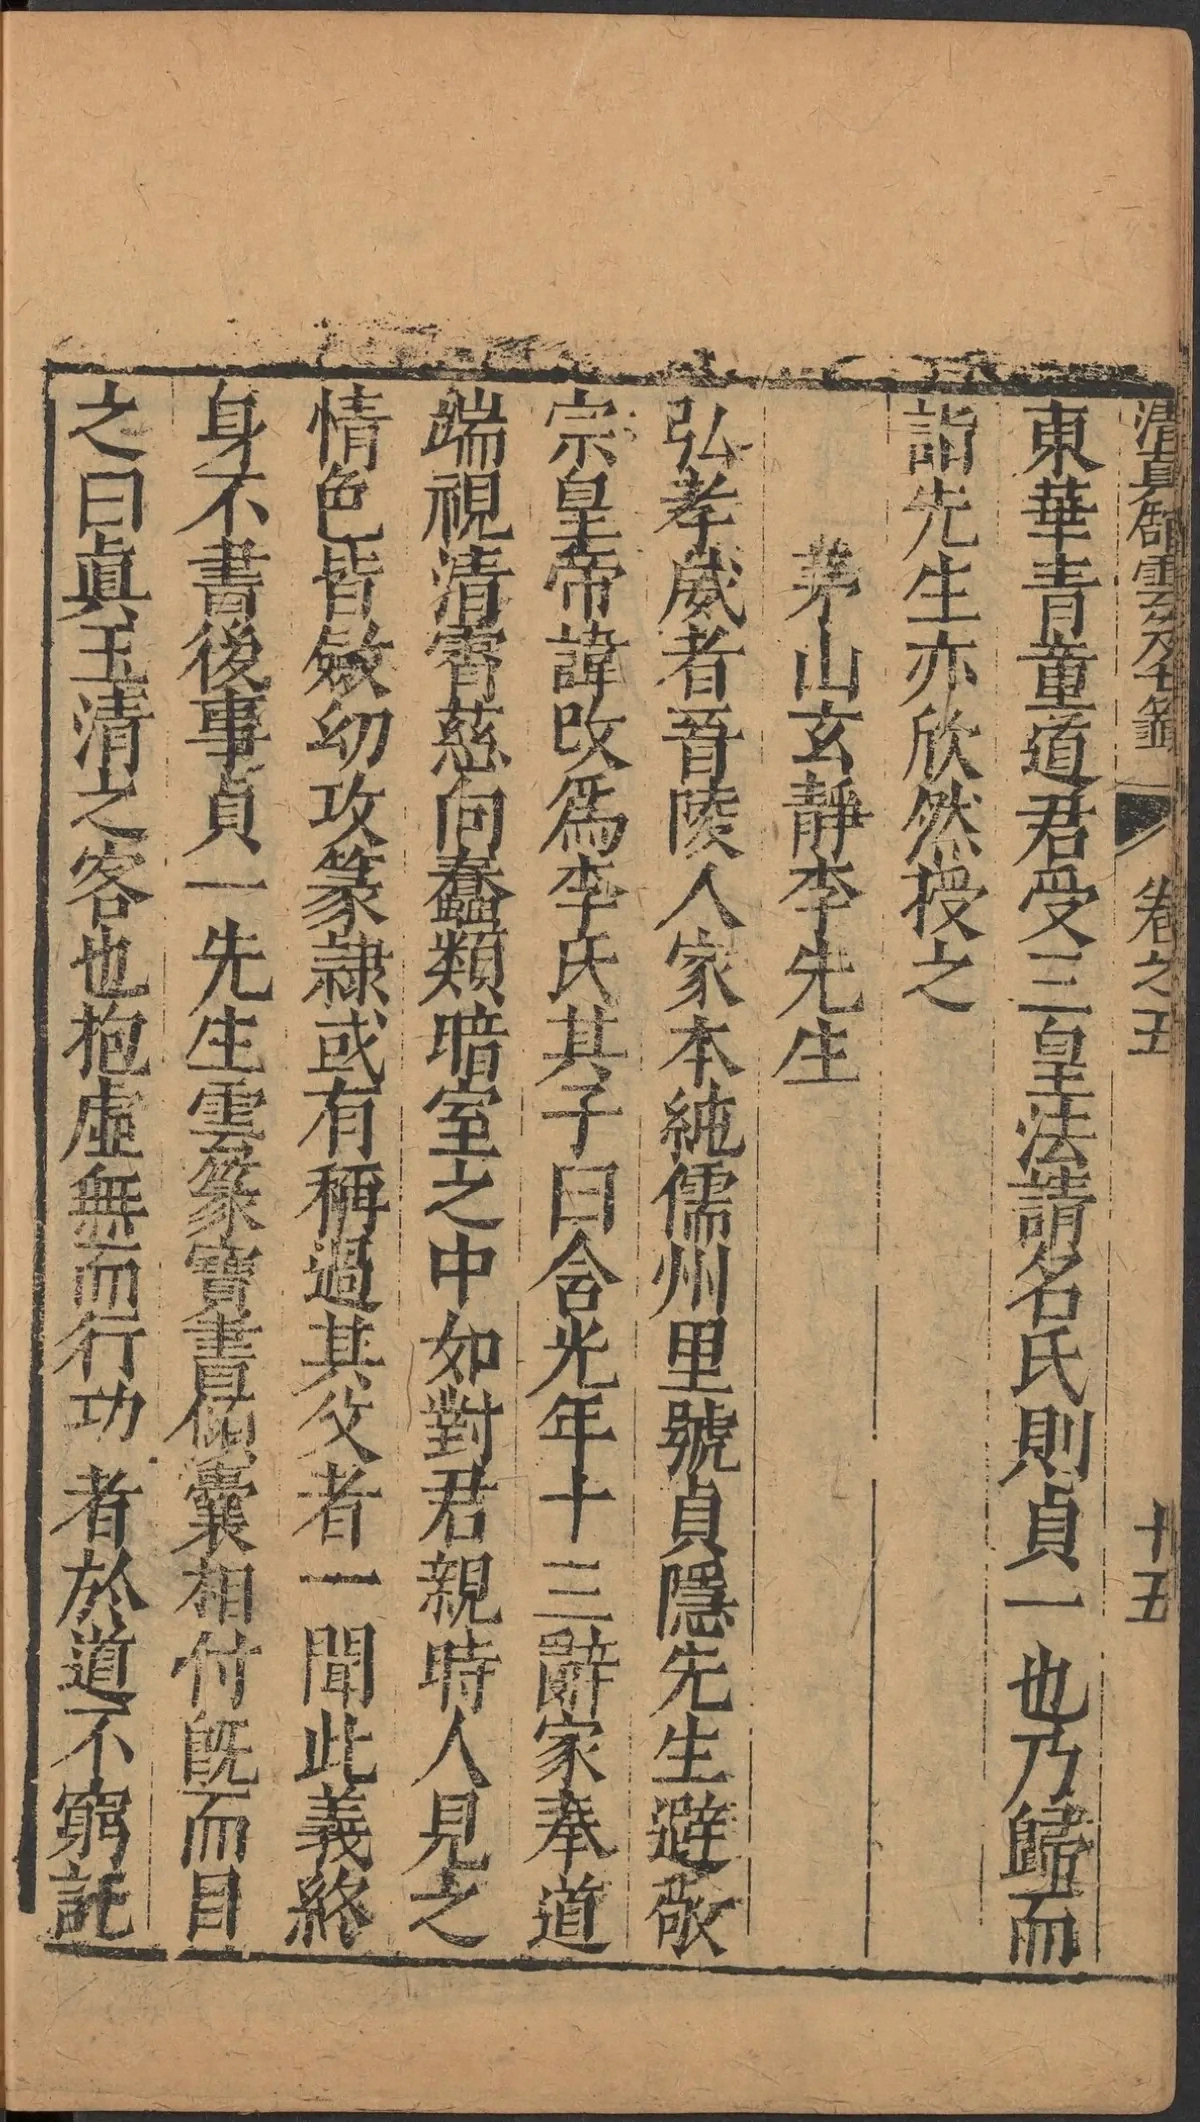 清眞館雲笈七籤 卷之五 十五
東華青童道君受三皇法請名氏則貞一也乃歸而
詣先生亦欣然授之
茅山玄靜李先生
弘孝威者晉陵人家本純儒州里號貞隱先生避敬
宗皇帝諱改爲李氏其子曰含光年十三辭家奉道
端視清霄慈向蠢類暗室之中如對君親時人見之
情色皆斂幼攻篆隷或有稱過其父者一聞此義終
身不書後事貞一先生雲篆寶書傾囊相付旣而目
之曰眞玉清之客也抱虛無而行功者於道不窮託